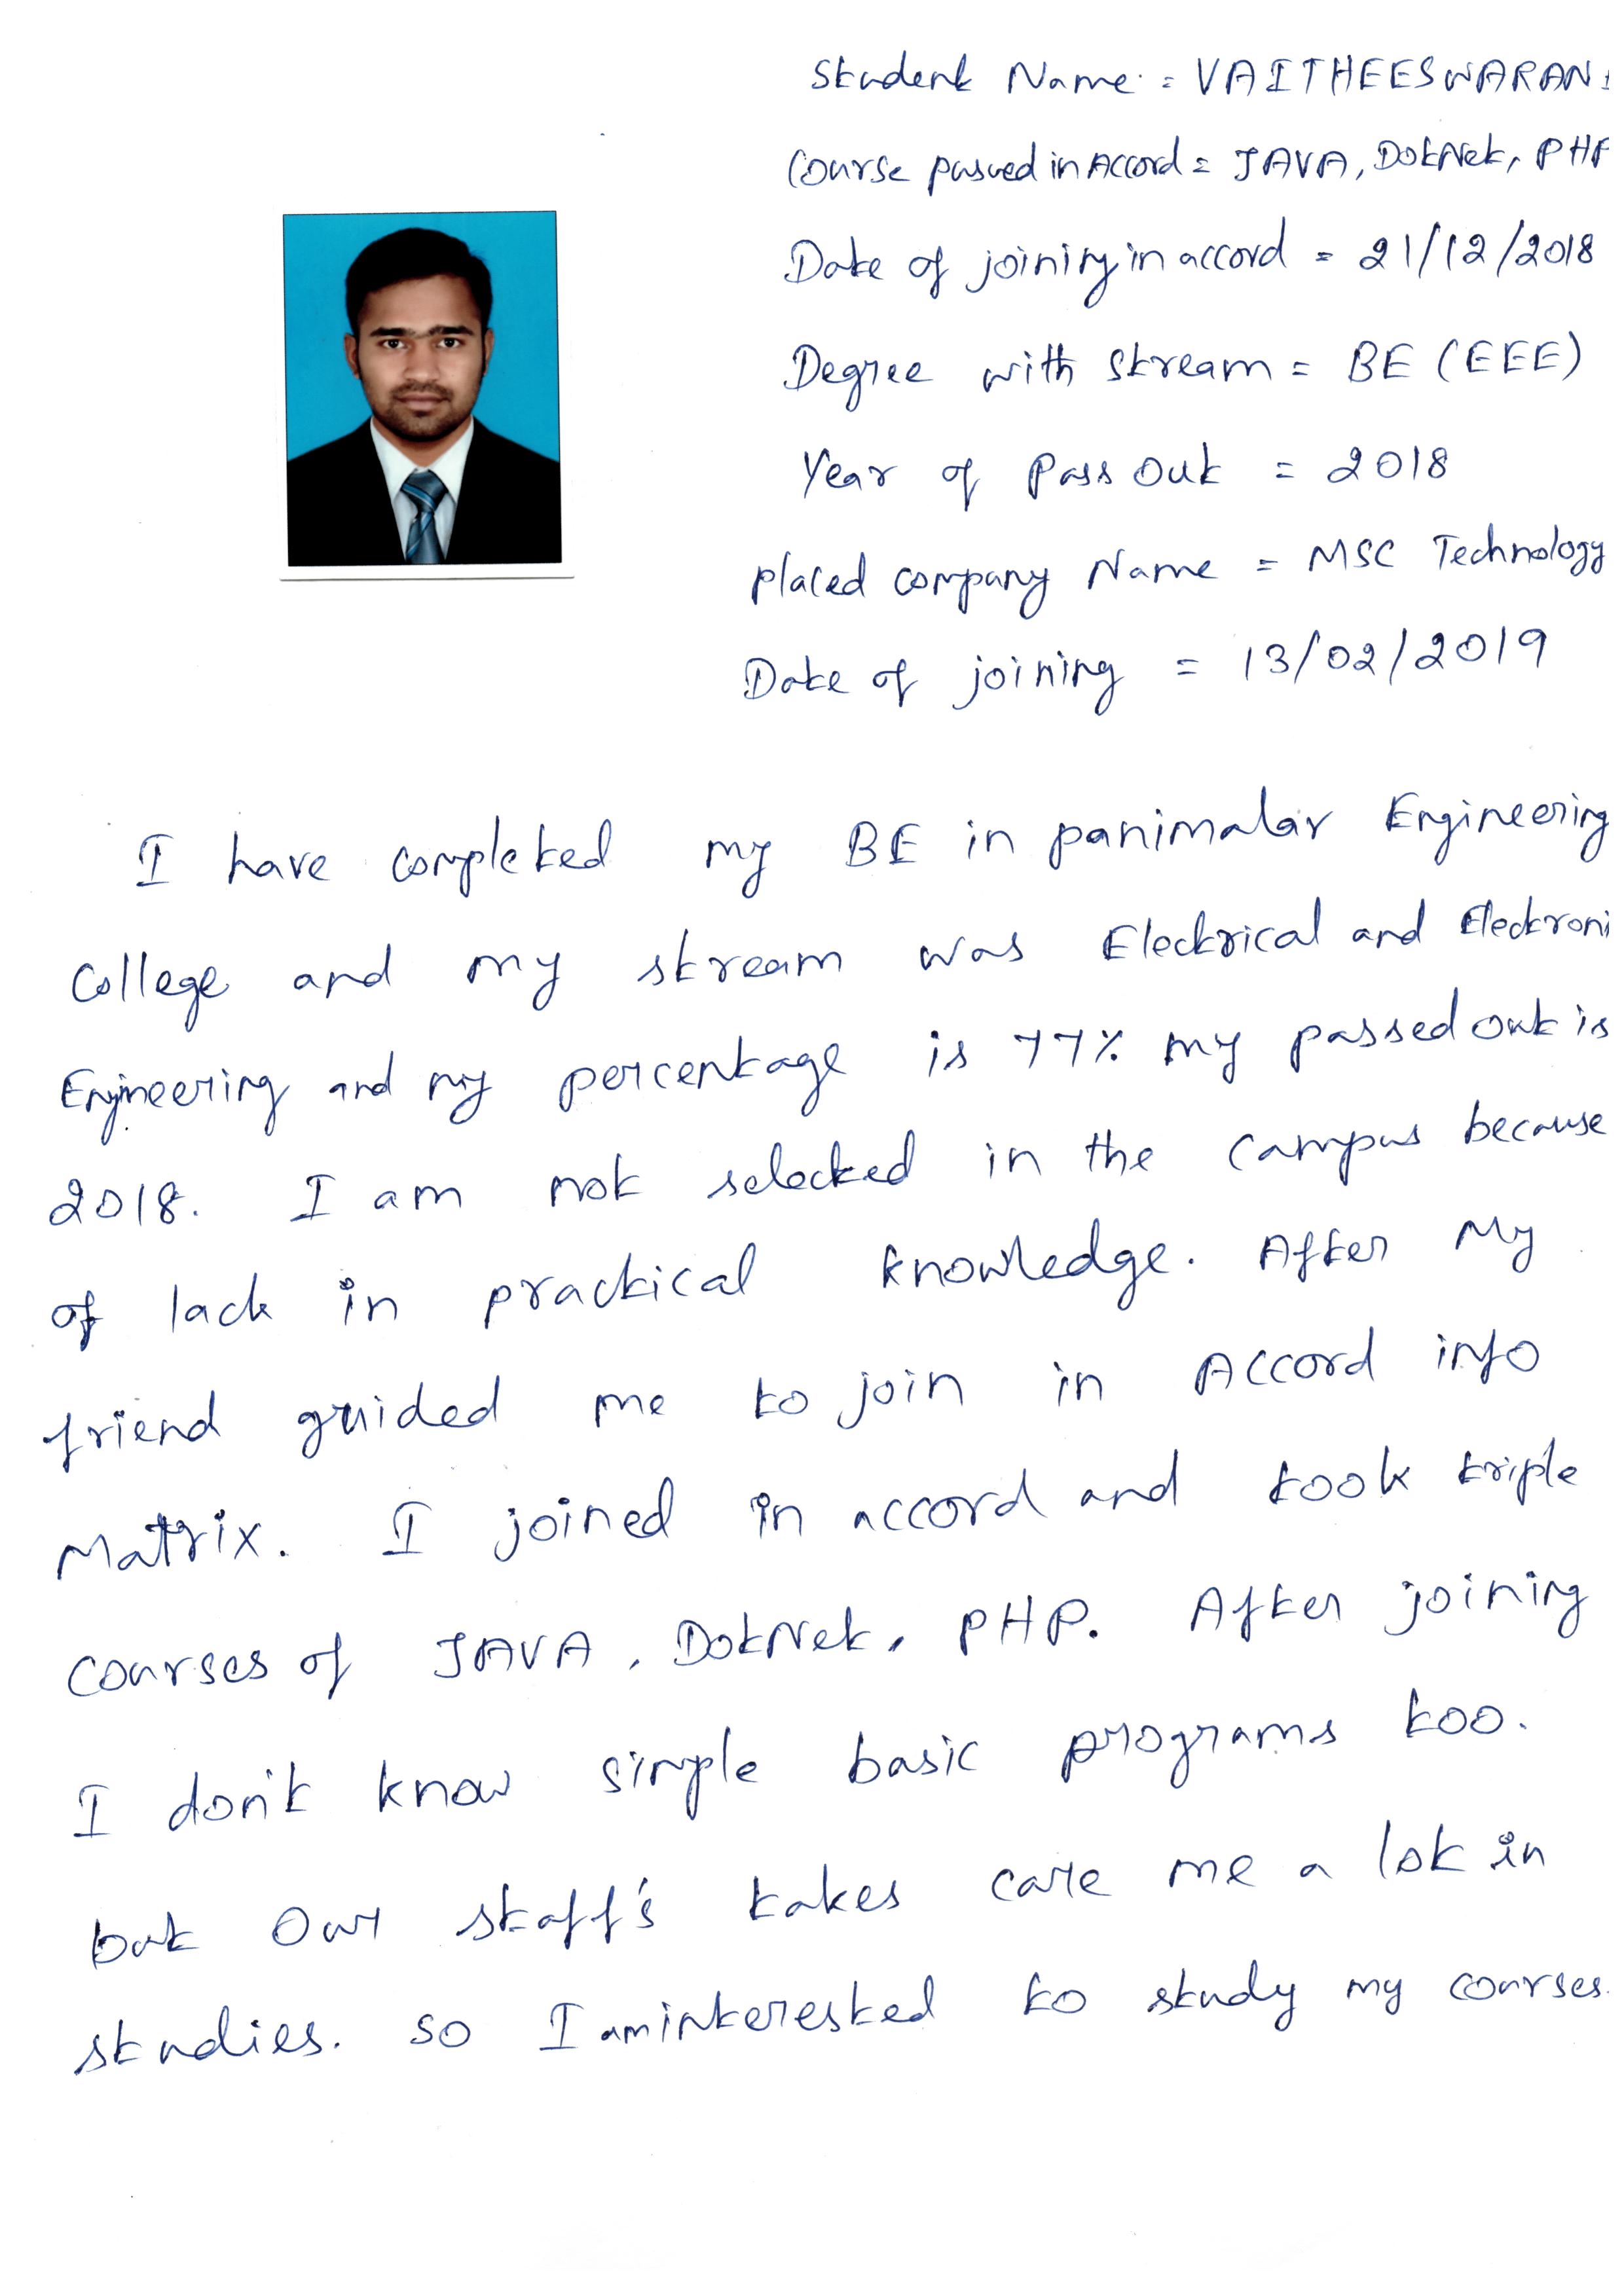 Student Name : VAITHEESWARAN
Course pusued in Accord = JAVA, DotNet, PHP
Date of joining in accord = 21/12/2018
Degree with Stream = BE (EEE)
Year of Pass Out = 2018
Placed company Name = MSC Technology
Date of joining = 13/02/2019
I have completed my BE in panimalar Engineering
College and my stream was Electrical and Electroni
Engineering and my percentage is 77% my passed out is
2018. I am not selected in the campus because
of lack in practical knowledge. After My
friend guided me to join in Accord info
Matrix. I joined in accord and took triple
courses of JAVA, DotNet, PHP. After joining
I don't know simple basic programs too.
but our staff's takes care me a lot in
studies. so I am interested to study my courses.